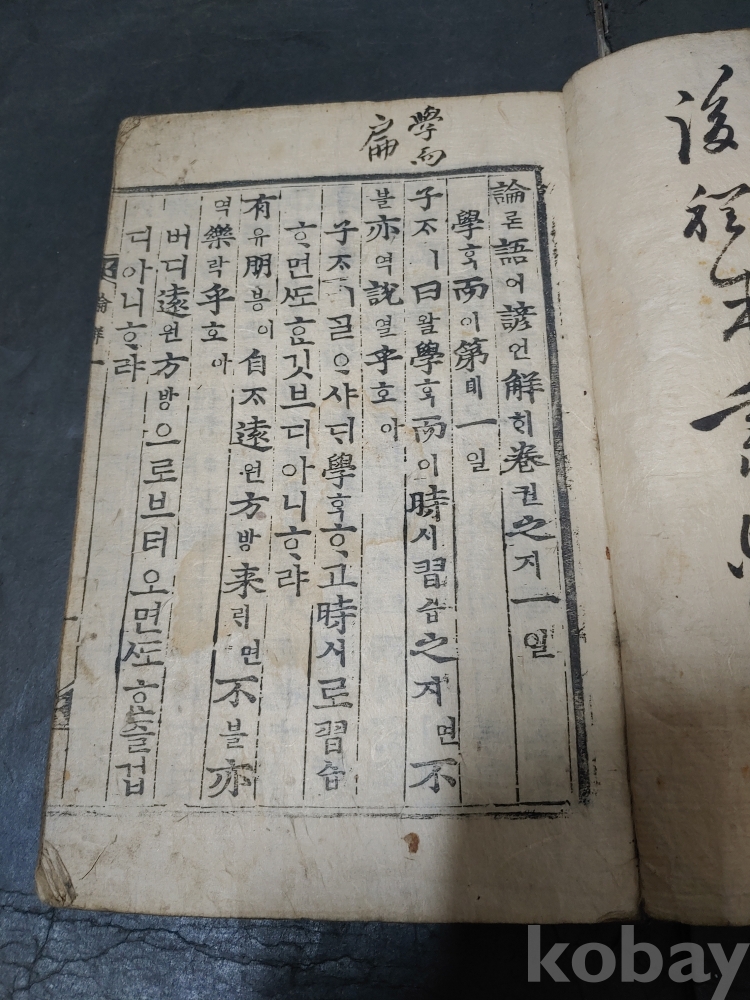 學而
扁
論론語어諺언解ᄒᆡ卷권之지一일
學ᄒᆞᆨ而이第뎨一일
子ᄌᆞㅣ曰왈學ᄒᆞᆨ而이時시習습之지면不
블亦역說열乎호아
子ᄌᆞㅣᄀᆞᆯᄋᆞ샤ᄃᆡ學ᄒᆞᆨᄒᆞ고時시로習습
ᄒᆞ면ᄯᅩᄒᆞᆫ깃브디아니ᄒᆞ랴
有유朋븡이自ᄌᆞ遠원方방来ᄅᆡ면不블亦
역樂락乎호아
버디遠원方방으로브터오면ᄯᅩᄒᆞᆫ즐겁
디아니ᄒᆞ랴
論解 一
後
kobay